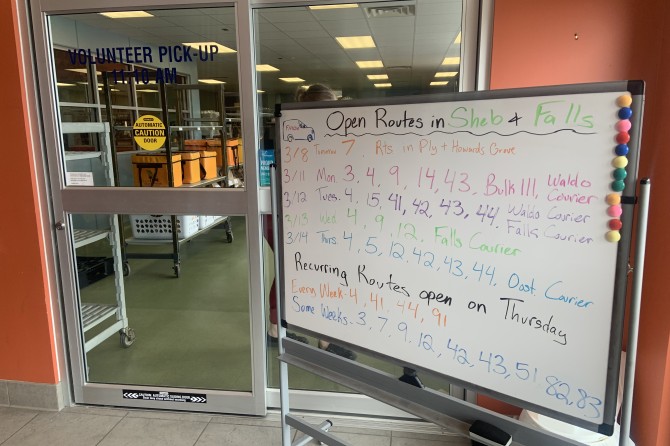 VOLUNTEER PICK-UP
AUTOMATIC
CAUTION
DOOR
Open Routes in Sheb & Falls
3/8 Tomorrow 7 Rts in Ply + Howards Grove
3/11 Mon. 3, 4, 9, 14, 43, Bulk 111, Waldo Courier
3/12 Tues. 4, 15, 41, 42, 43, 44, Waldo Courier Falls Courier
3/13 Wed 4, 9, 12, Falls Courier
3/14 Thurs 4, 5, 12, 42, 43, 44, Oost. Courier
Recurring Routes open on Thursday
Every Week - 4, 41, 44, 91
Some Weeks. 3, 7, 9, 12, 42, 43, 51, 82, 83
CAUTION: AUTOMATIC SLIDING DOOR